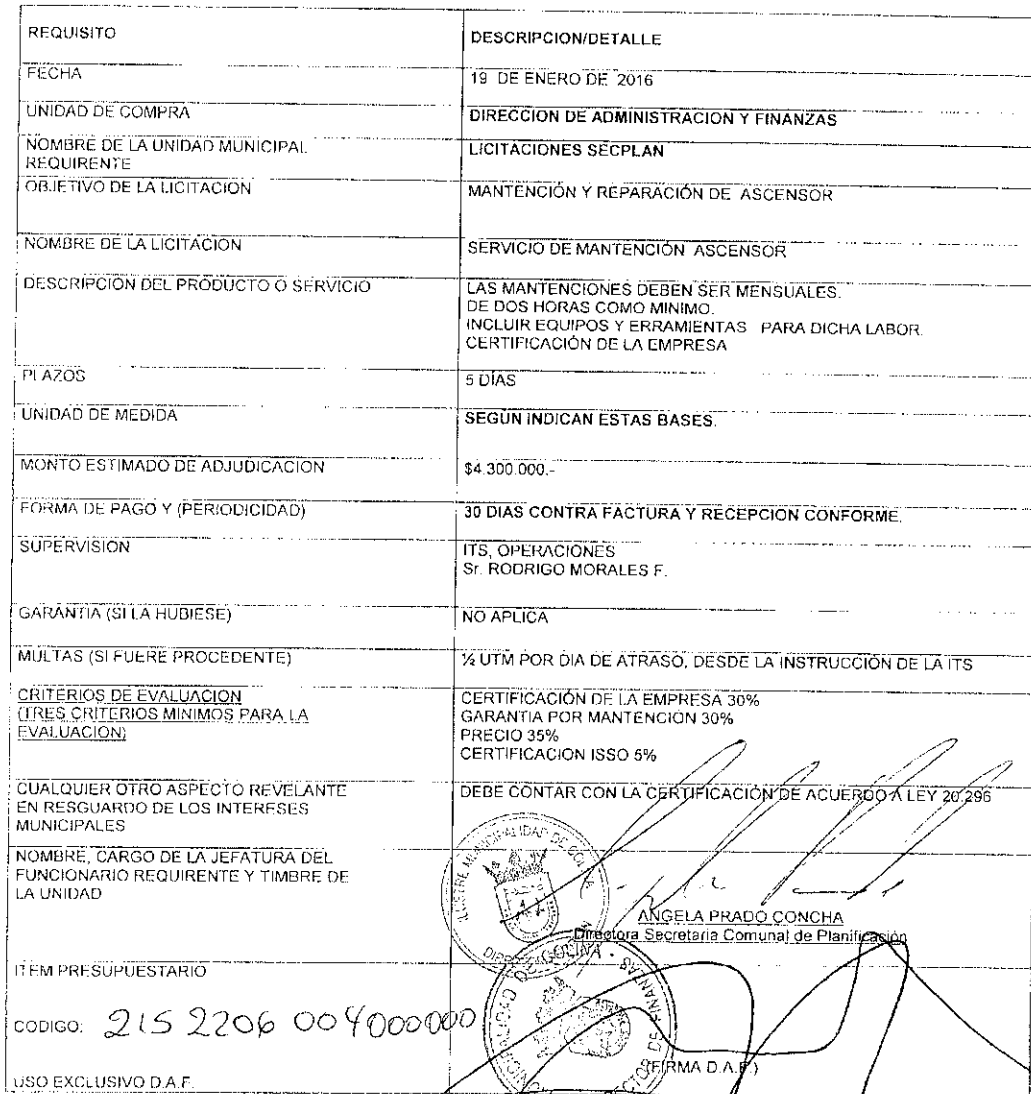 REQUISITO
DESCRIPCION/DETALLE
FECHA
19 DE ENERO DE 2016
UNIDAD DE COMPRA
DIRECCION DE ADMINISTRACION Y FINANZAS
NOMBRE DE LA UNIDAD MUNICIPAL
REQUIRENTE
LICITACIONES SECPLAN
OBJETIVO DE LA LICITACION
MANTENCIÓN Y REPARACIÓN DE ASCENSOR
NOMBRE DE LA LICITACION
SERVICIO DE MANTENCIÓN ASCENSOR
DESCRIPCION DEL PRODUCTO O SERVICIO
LAS MANTENCIONES DEBEN SER MENSUALES.
DE DOS HORAS COMO MINIMO.
INCLUIR EQUIPOS Y ERRAMIENTAS PARA DICHA LABOR.
CERTIFICACIÓN DE LA EMPRESA
PLAZOS
5 DÍAS
UNIDAD DE MEDIDA
SEGÚN INDICAN ESTAS BASES.
MONTO ESTIMADO DE ADJUDICACION
$4.300.000.-
FORMA DE PAGO Y (PERIODICIDAD)
30 DIAS CONTRA FACTURA Y RECEPCION CONFORME.
SUPERVISION
ITS, OPERACIONES
Sr. RODRIGO MORALES F.
GARANTIA (SI LA HUBIESE)
NO APLICA
MULTAS (SI FUERE PROCEDENTE)
½ UTM POR DIA DE ATRASO, DESDE LA INSTRUCCIÓN DE LA ITS
CRITERIOS DE EVALUACION
(TRES CRITERIOS MINIMOS PARA LA
EVALUACION)
CERTIFICACIÓN DE LA EMPRESA 30%
GARANTIA POR MANTENCIÓN 30%
PRECIO 35%
CERTIFICACION ISSO 5%
CUALQUIER OTRO ASPECTO REVELANTE
EN RESGUARDO DE LOS INTERESES
MUNICIPALES
DEBE CONTAR CON LA CERTIFICACIÓN DE ACUERDO A LEY 20.296
NOMBRE, CARGO DE LA JEFATURA DEL
FUNCIONARIO REQUIRENTE Y TIMBRE DE
LA UNIDAD
ILUSTRE MUNICIPALIDAD DE COLINA
ANGELA PRADO CONCHA
Directora Secretaria Comunal de Planificación
ITEM PRESUPUESTARIO
CODIGO: 215 2206 004000000
DE FINANZAS
(FIRMA D.A.F.)
USO EXCLUSIVO D.A.F.